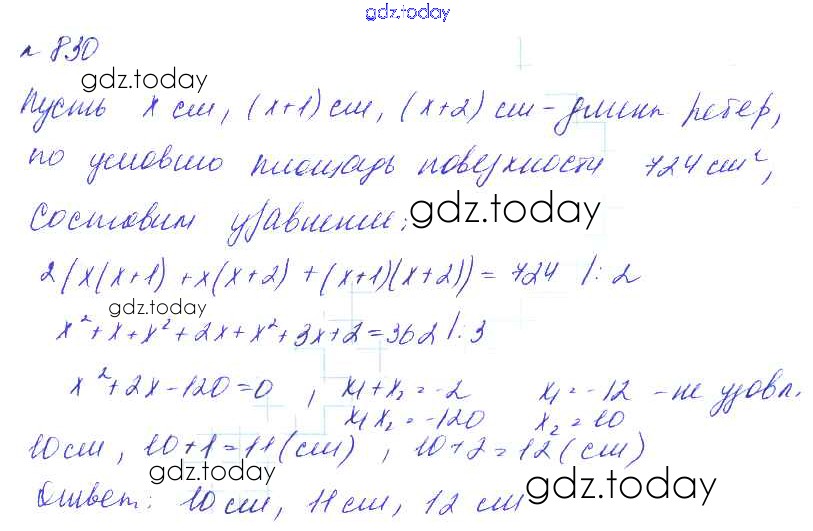 gdz.today
№ 830
gdz.today
Пусть x см, (x+1) см, (x+2) см - длины ребер,
по условию площадь поверхности 724 см²,
составим уравнение:
gdz.today
2(x(x+1) + x(x+2) + (x+1)(x+2)) = 724 |: 2
gdz.today
x² + x + x² + 2x + x² + 3x + 2 = 362 |: 3
x² + 2x - 120 = 0 , x₁ + x₂ = -2 x₁ = -12 - не удовл.
gdz.today x₁x₂ = -120 x₂ = 10
10 см, 10+1=11 (см) , 10+2=12 (см)
gdz.today
Ответ: 10 см, 11 см, 12 см
gdz.today